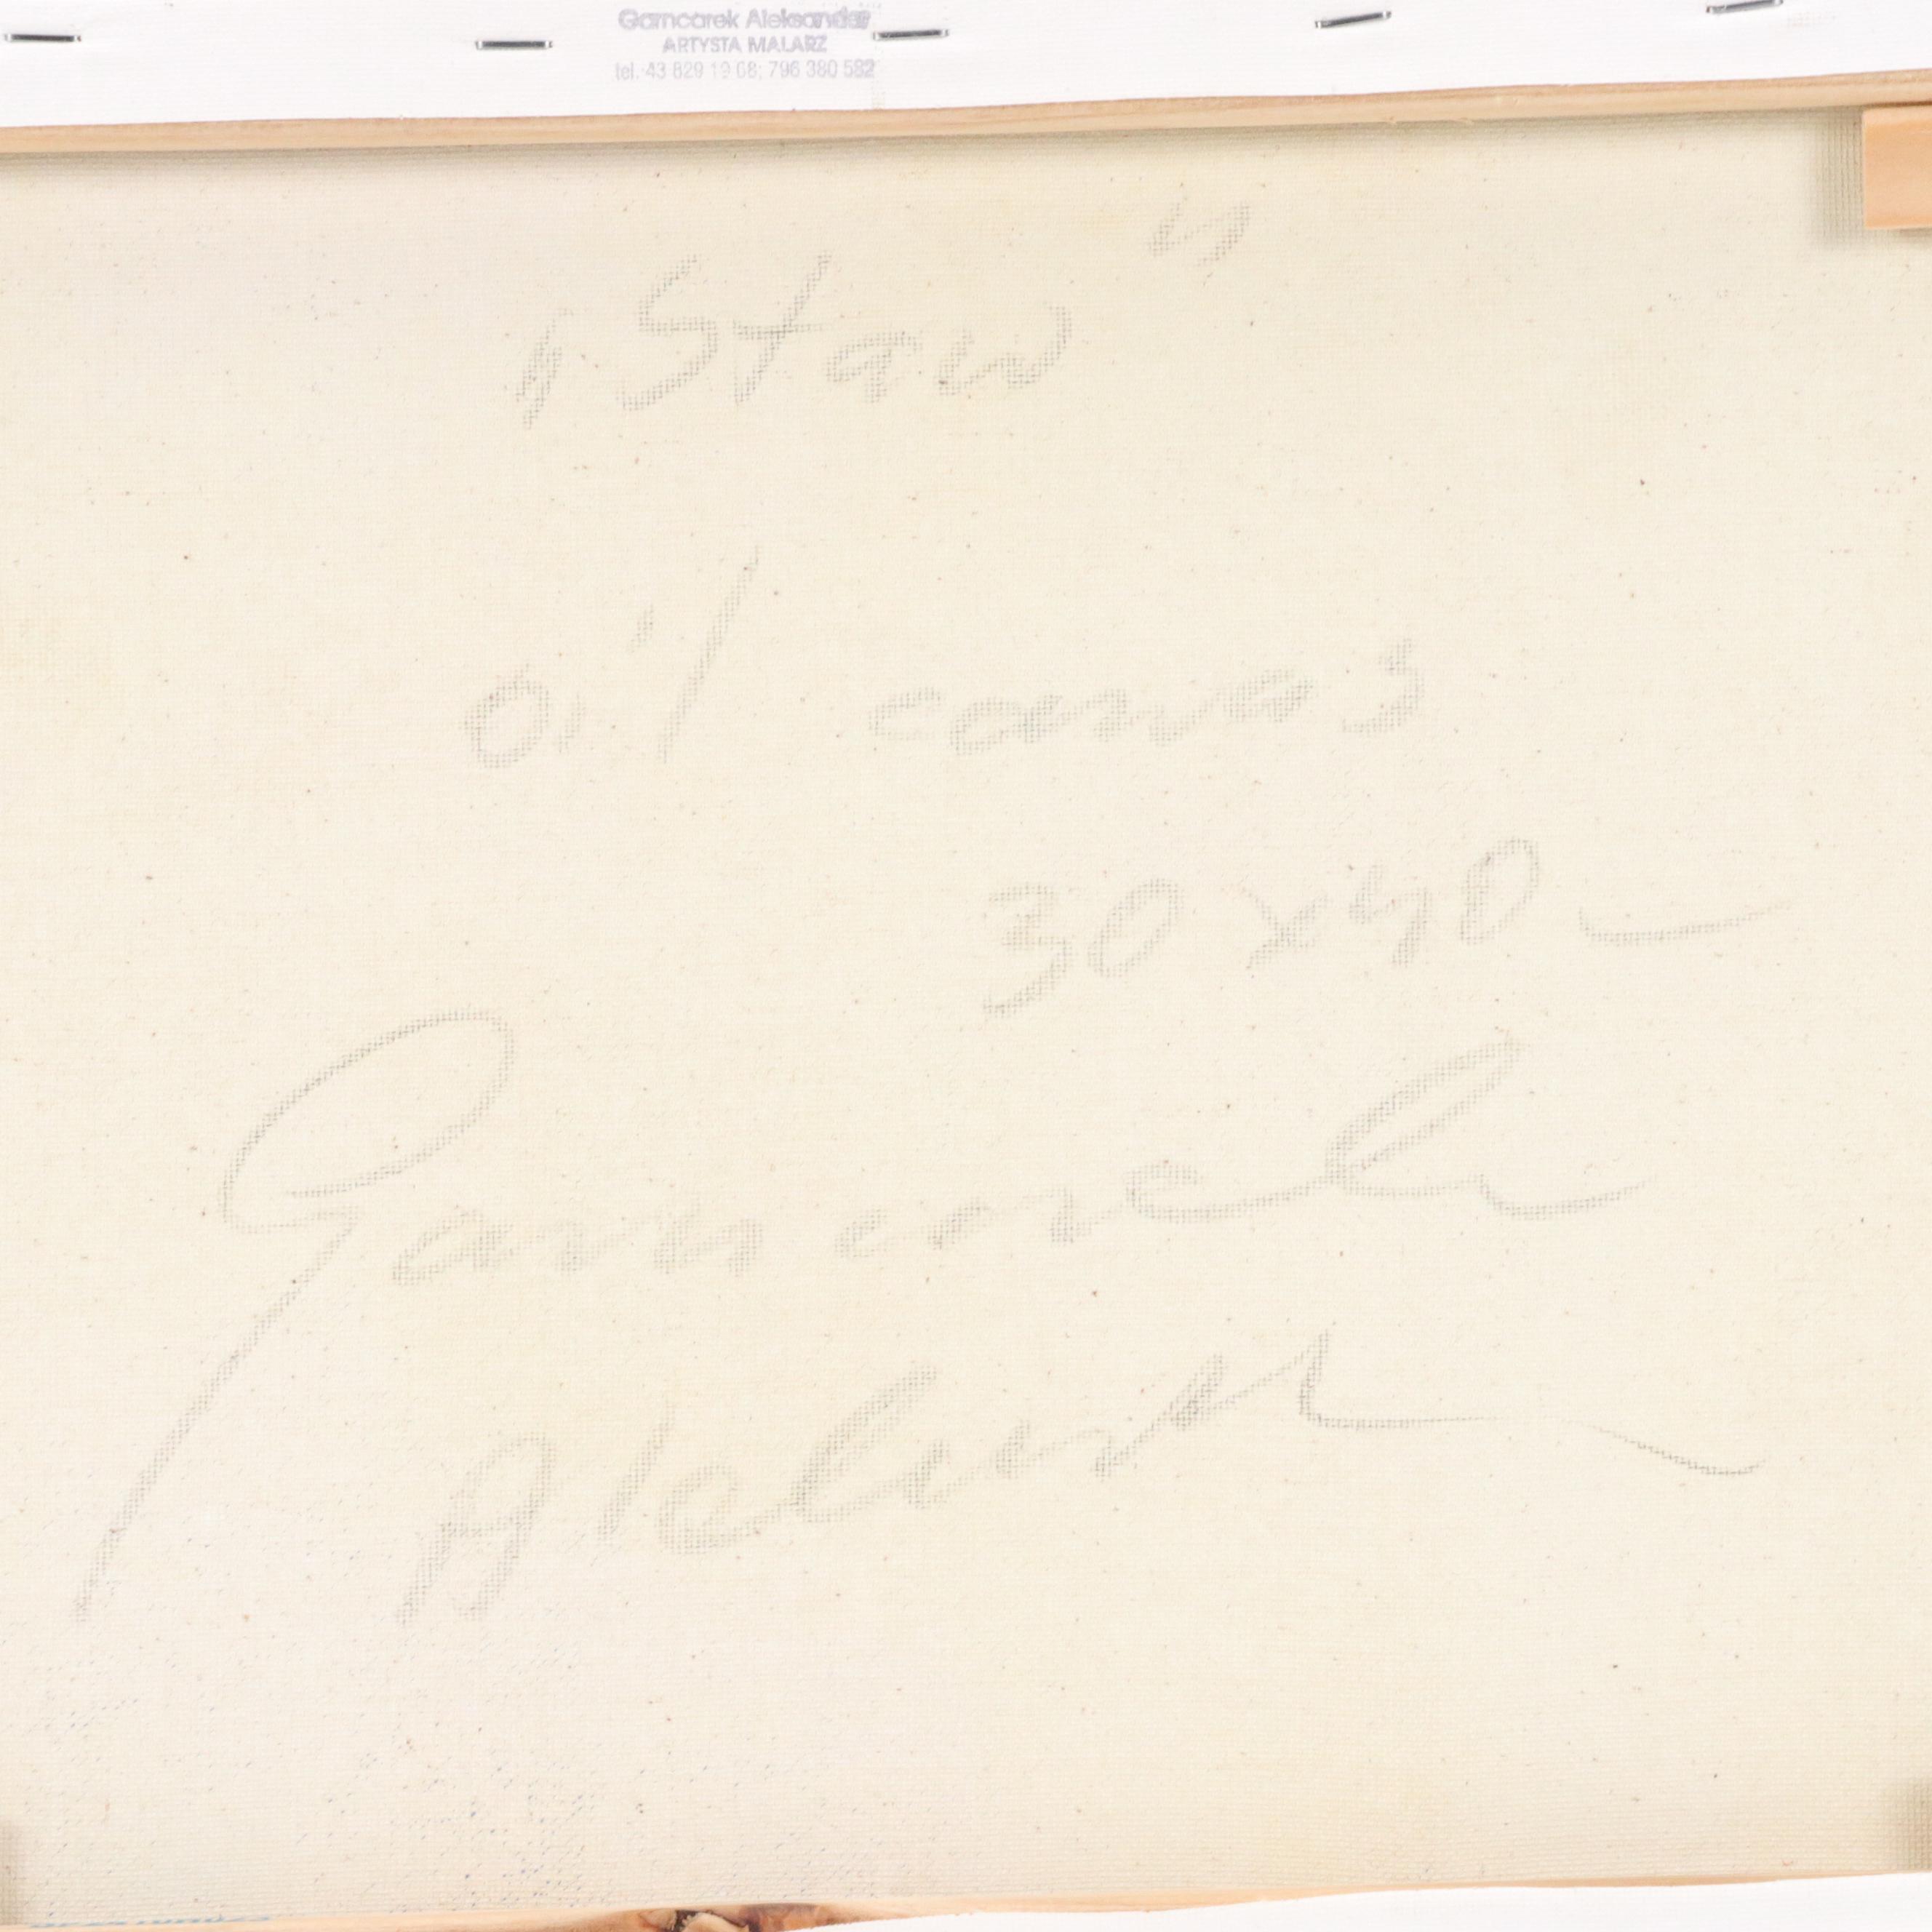 Garncarek Aleksander
ARTYSTA MALARZ
tel. 43 829 19 68; 796 380 582
"Staw"
oil canvas
30x40
Garncarek
Aleksander